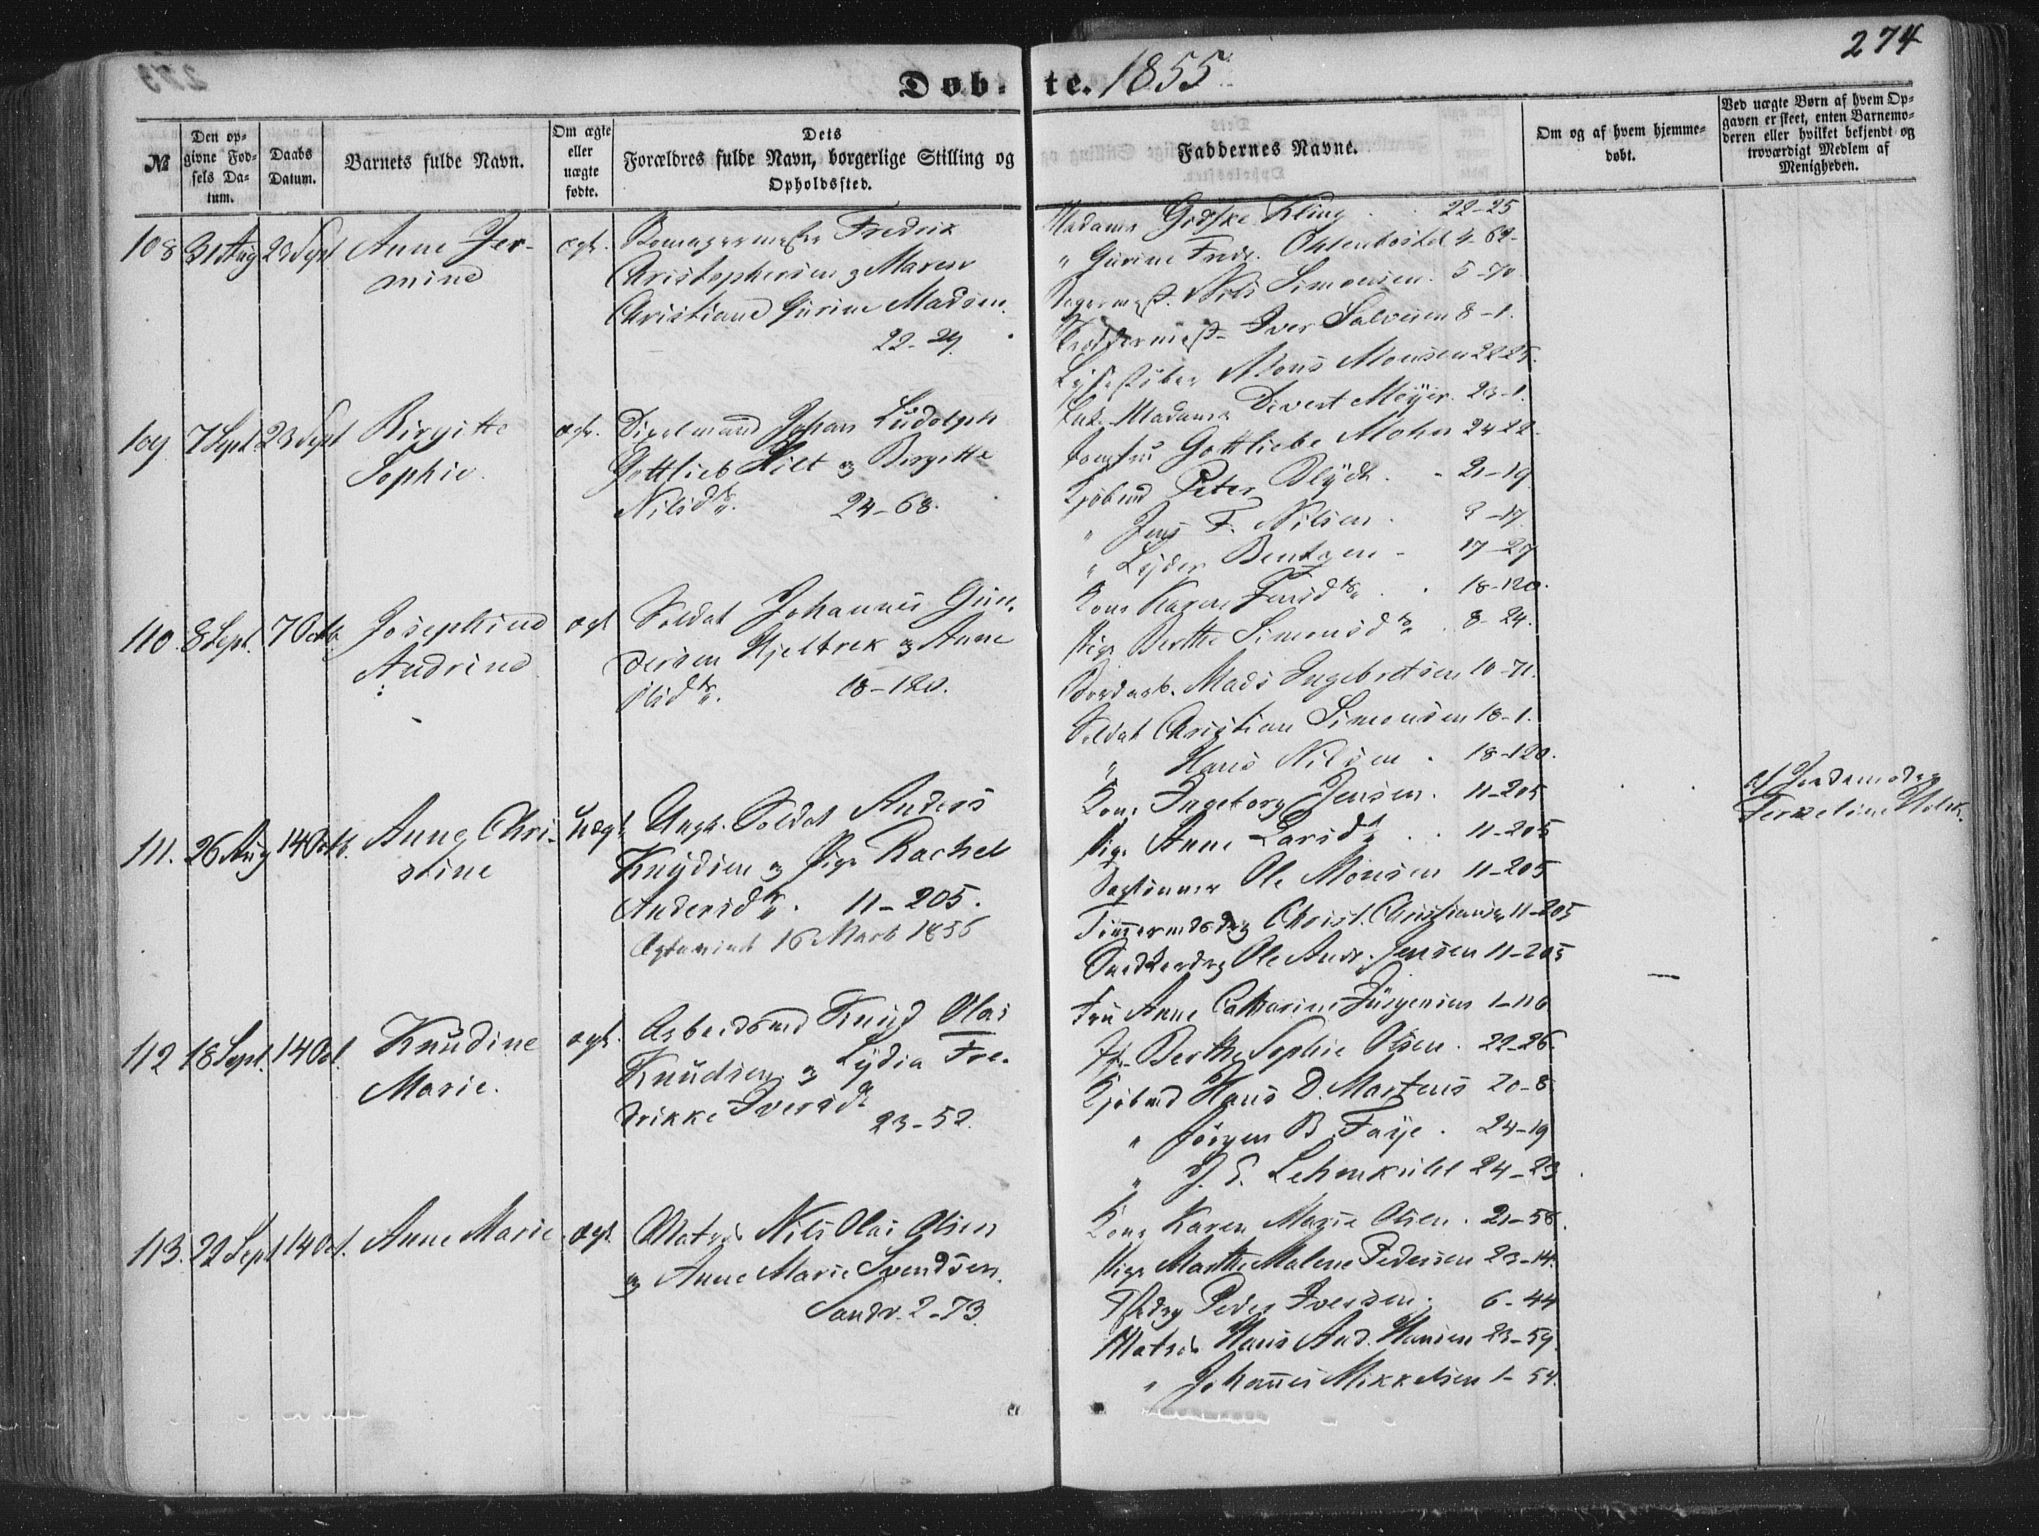 274
Døbte. 1855
№
Den opgivne Fødsels Datum.
Daabs Datum.
Barnets fulde Navn.
Om ægte eller uægte fødte.
Dets Forældres fulde Navn, borgerlige Stilling og Opholdssted.
Faddernes Navne.
Om og af hvem hjemmedøbt.
Ved uægte Børn af hvem Opgaven er skeet, enten Barnemoderen eller hvilket bekjendt og troværdigt Medlem af Menigheden.
108. 31 Aug 23 Sept Anne Jermine ægt.
Fredrik
Christophersen og Maren
Christiane Gurine Madsen.
22-29.
Madame Gidske Kling 22-25
" Gurine Fredr. 4-62-
Nils Simonsen. 5-70
Iver Salvesen 8-1.
Mons Monsen 22-25.
109 7 Sept 23 Sept Birgitte
Sophie.
ægt.
Johan Ludolph
Gottlieb Hilt og Birgitte
Nilsdtr. 24-68.
Madame Divert Meyer. 23-1.
Jomfru Gottliebe Mohn 24-22.
Kjøbmd Peter Blydt. - 21-19.
" Jens F. Nilsen. -17.
" Lyder Bentzen - 17-27
110. 8 Sept. 7 Octb. Josephine
Andrine
ægt
Soldat Johannes Gun-
dersen Hjeltrek og Anne
Olsdtr. 18-120.
Kone Karen 18-120.
Pige Berthe Simonsdtr. 8-24.
Mads Ingebretsen 10-71.
Soldat Christian Simonsen 18-1.
" Hans Nilsen. 18-120.
111. 26 Aug 14 Octb. Anne Chri-
stine
uægt
Ungk. Soldat Anders
Knudsen og Pige Rachel
Andersdtr. 11-205.
16 Marts 1856
Kone Ingeborg Jensen. 11-205
Pige Anne Larsdtr. 11-205
Ole Monsen 11-205
Christ. Christiansen 11-205
Ole Andr. Jensen 11-205
af Jordemoder
112 18 Sept. 14 Oct. Knudine
Marie.
ægt.
Arbeidsmd Knud Olai
Knudsen og Lydia Fre-
drikke Iversdtr
23-52.
Fru Anne Catharine Jürgensen 1-110
Jfr. Berthe Sophie Olsen. 22-26.
Kjøbmd Hans D. Martens 20-8
" Jørgen B. Faye. 24-19
" J. E. Lehmkuhl 24-23
113. 22 Sept 14 Oct. Anne Marie ægt.
Matros Nils Olai Olsen
og Anne Marie Svendsen.
Sandv. 2-73.
Kone Karen Marie Olsen. 21-58.
Pige Marthe Malene Pedersen 23-14.
Peder Iversen. 6-44
Matros Hans And. Hansen 23-59.
" Johannes Mikkelsen 1-54.